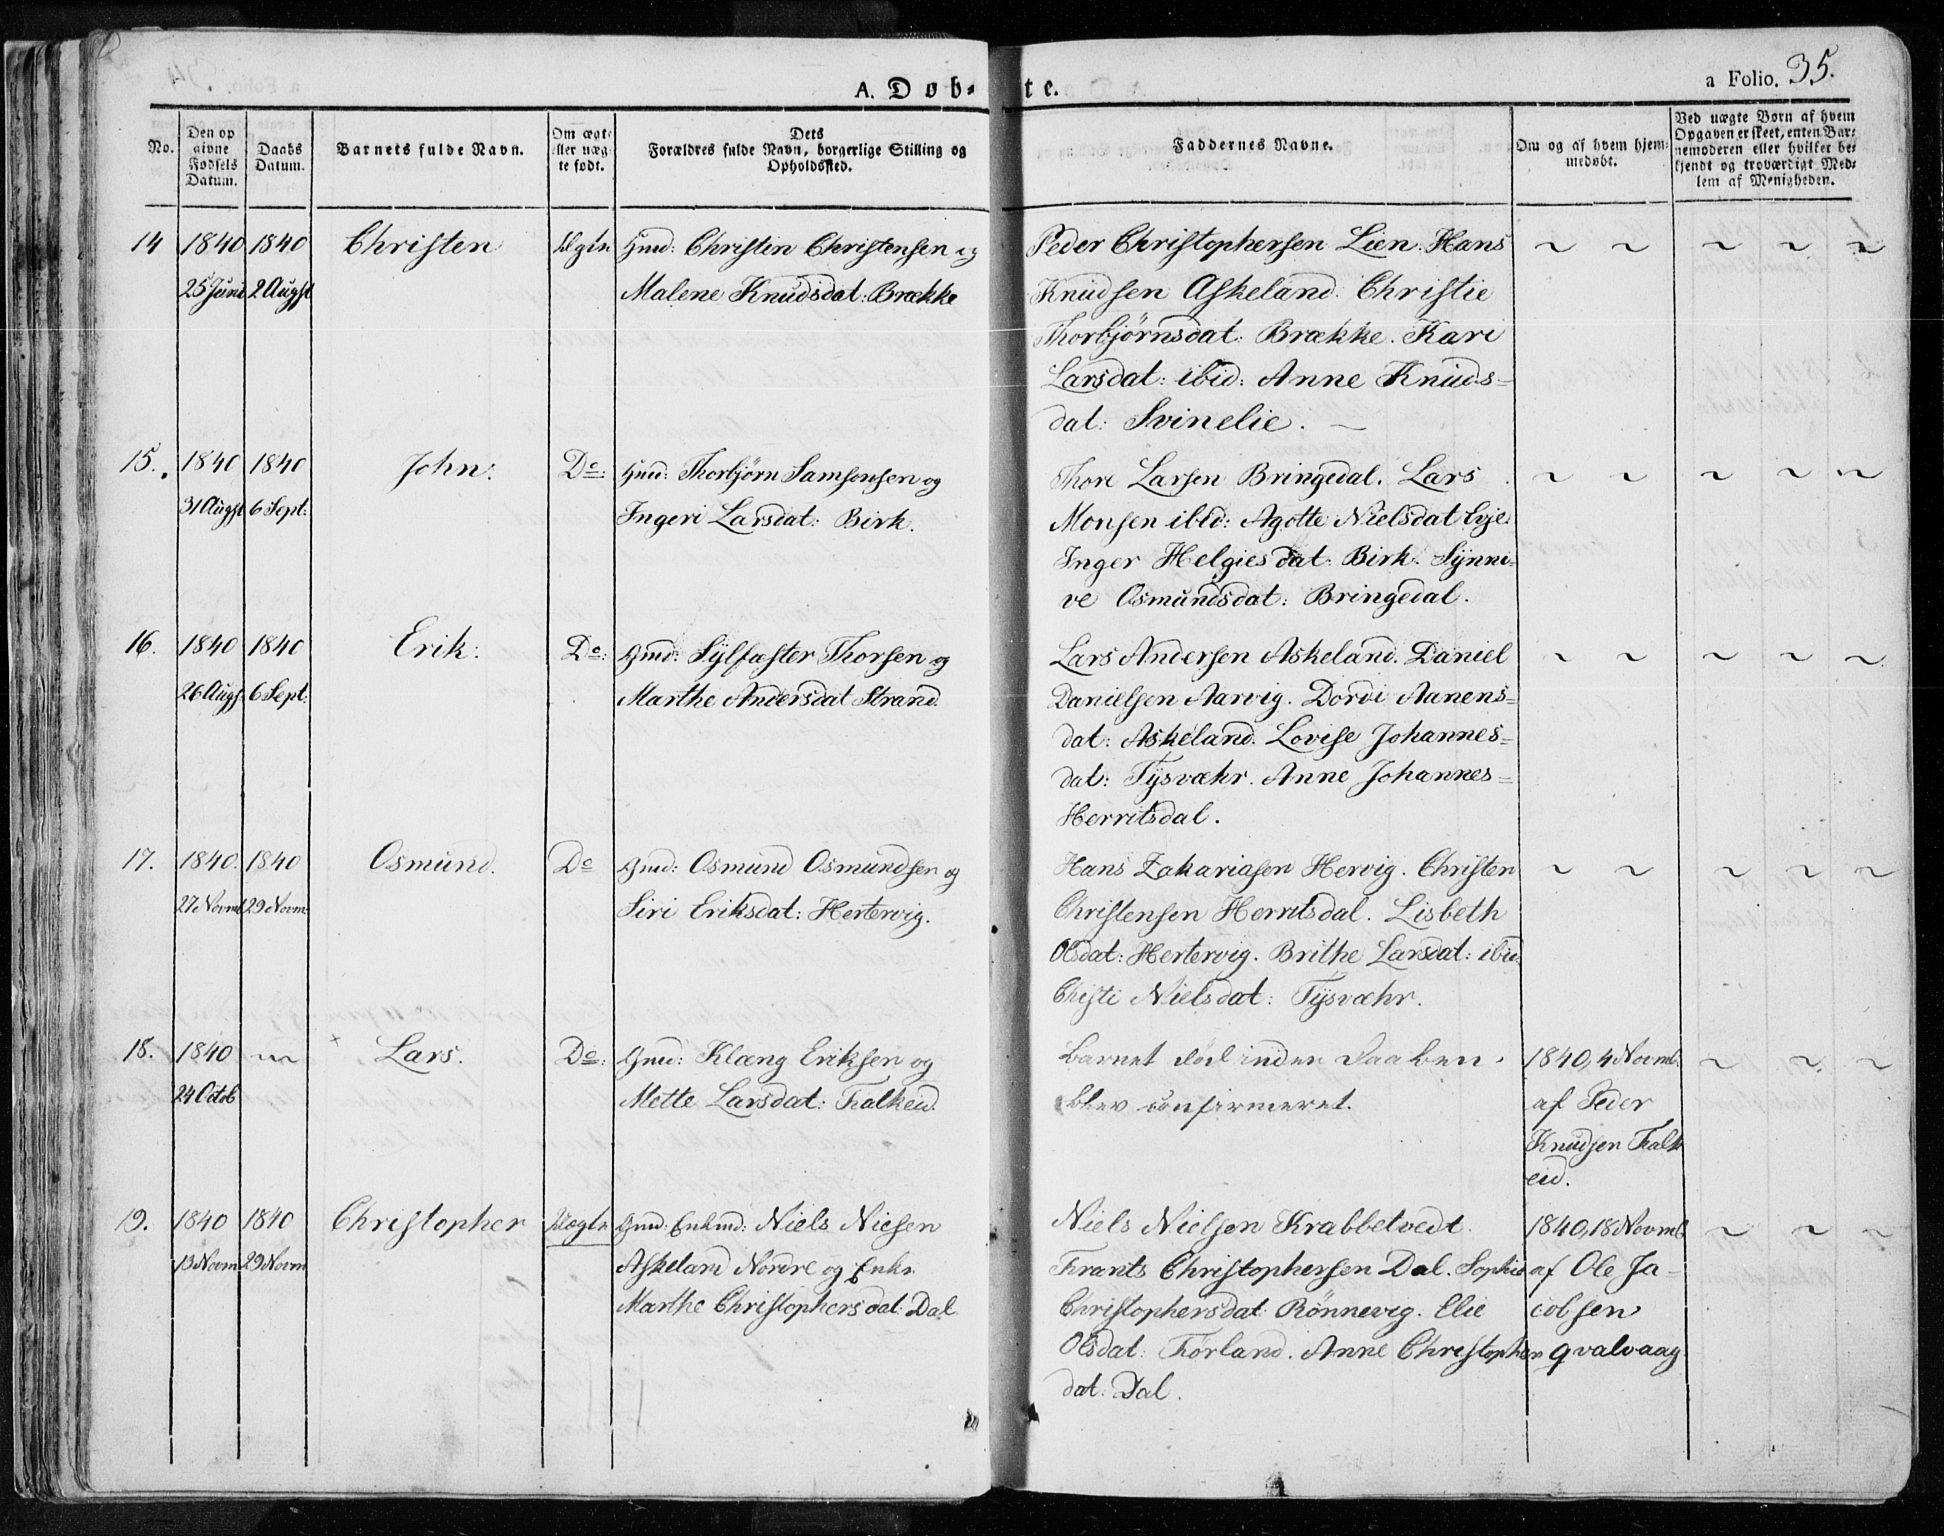 A. Døb- te.
a Folio. 35.
No.
Den op
givne
Fødsels
Datum.
Daabs
Datum.
Barnets fulde Navn.
Om ægte
eller uæg-
te født.
Dets
Forældres fulde Navn, borgerlige Stilling og
Opholdssted.
Faddernes Navne.
Om og af hvem hjem-
medøbt.
Ved uægte Børn af hvem
Opgaven er skeet, enten Bar-
nemoderen eller hvilket be-
kjendt og troværdigt Med-
lem af Menigheden.
14 1840 1840 Christen Ægte Gmd: Christen Christensen og Peder Christophersen Lien. Hans ~ ~ ~ ~ ~
25 Juni 2 Augst Malene Knudsdat: Brække Knudsen Askeland. Christie
Thorbjørnsdat: Brække. Kari
Larsdat: ibid: Anne Knuds-
dat: Svinelie. —
15. 1840 1840 John: Do: Gmd: Thorbjørn Samsonsen og Thore Larsen Bringedal. Lars ~ ~ ~ ~ ~
31 Augst 6 Sept: Ingeri Larsdat: Birk. Monsen ibid: Agotte Nielsdat
Inger Helgiesdat: Birk. Synni-
ve Osmundsdat: Bringedal.
16. 1840 1840 Erik: Do: Gmd: Sylfæster Thorsen og Lars Andersen Askeland. Daniel ~ ~ ~ ~ ~
26 Augst 6 Sept: Marthe Andersdat Strand. Danielsen Aarvig. Dordi Aanens-
dat: Askeland. Lovise Johannes-
dat: Tysvæhr. Anne Johannes-
Herritsdal.
17. 1840. 1840 Osmund. Do Gmd: Osmund Osmundsen og Hans Zakariasen Hervig. Christen ~ ~ ~ ~ ~
27 Novmb 29 Novm: Siri Eriksdat: Hertervig. Christensen Herritsdal. Lisbeth
Olsdat: Hertervig. Brithe Larsdat: ibid.
Christi Nielsdat: Tysvæhr.
18. 1840 ~ × Lars. Do: Gmd: Klæng Eriksen og Barnet død inden Daaben 1840, 4 Novmb. ~ ~ ~
24 Octob Mette Larsdat: Falkeid. blev confirmeret. af Peder
Knudsen Falk
eid.
19. 1840 1840 Christopher Uægte Gmd: Enkmd: Niels Nielsen Niels Nielsen Krabbetvedt. 1840, 18 Novmb ~ ~ ~
13 Novm 29 Novm Askeland Nordre og Enke Frants Christophersen Dal. Sophie af Ole Ja-
Marthe Christophersdat: Dal Christophersdat: Rönnevig. Elie cobsen
Olsdat: Førland. Anne Christophers qvalvaag
dat: Dal.